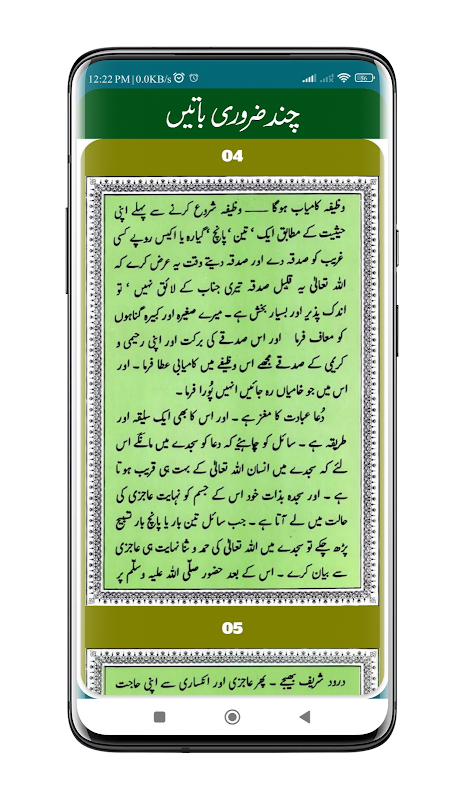 12:22 PM|0.0KB/s
چند ضروری باتیں
04
وظیفہ کامیاب ہوگا ___ وظیفہ شروع کرنے سے پہلے اپنی
حیثیت کے مطابق ایک ' تین ' پانچ ' گیارہ یا اکیس روپے کسی
غریب کو صدقہ دے اور صدقہ دیتے وقت یہ عرض کرے کہ
اللہ تعالیٰ یہ قلیل صدقہ تیری جناب کے لائق نہیں ' تو
اندک پذیر اور بسیار بخش ہے ۔ میرے صغیرہ اور کبیرہ گناہوں
کو معاف فرما اور اس صدقے کی برکت اور اپنی رحیمی و
کریمی کے صدقے مجھے اس وظیفے میں کامیابی عطا فرما ۔ اور
اس میں جو خامیاں رہ جائیں انہیں پُورا فرما ۔
دُعا عبادت کا مغز ہے ۔ اور اس کا بھی ایک سلیقہ اور
طریقہ ہے ۔ سائل کو چاہئیے کہ دعا کو سجدے میں مانگے اس
لئے کہ سجدے میں انسان اللہ تعالیٰ کے بہت ہی قریب ہوتا
ہے ۔ اور سجدہ بذات خود اس کے جسم کو نہایت عاجزی کی
حالت میں لے آتا ہے ۔ جب سائل تین بار یا پانچ بار تسبیح
پڑھ چکے تو سجدے میں اللہ تعالیٰ کی حمد و ثنا نہایت ہی عاجزی
سے بیان کرے ۔ اس کے بعد حضور صلّی اللہ علیہ وسلّم پر
05
درود شریف بھیجے ۔ پھر عاجزی اور انکساری سے اپنی حاجت